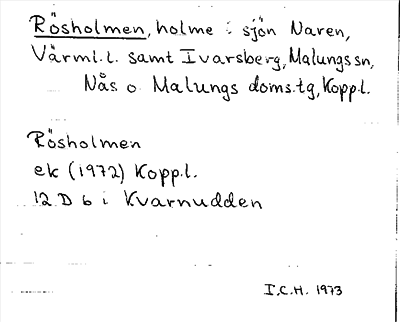 Rösholmen, holme i sjön Naren,
Värml.l. samt Ivarsberg, Malungs sn,
Nås o Malungs doms.tg, Kopp.l.
Rösholmen
ek (1972) Kopp.l.
12 D 6 i Kvarnudden
I.C.H. 1973